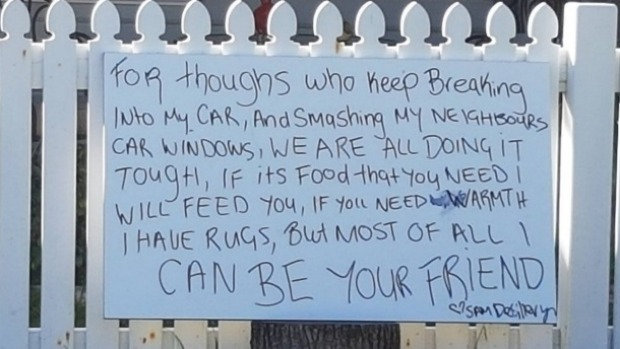 FOR thoughs who keep Breaking
INto My CAR, And Smashing MY NEIGHBOURS
CAR WINDOWS, WE ARE ALL DOING iT
TOUGH, IF its Food that you NEED I
WILL FEED YOU, IF YOU NEED WARMTH
I HAVE RUGS, BUt MOST OF ALL I
CAN BE YOUR FRIEND
♡SAM